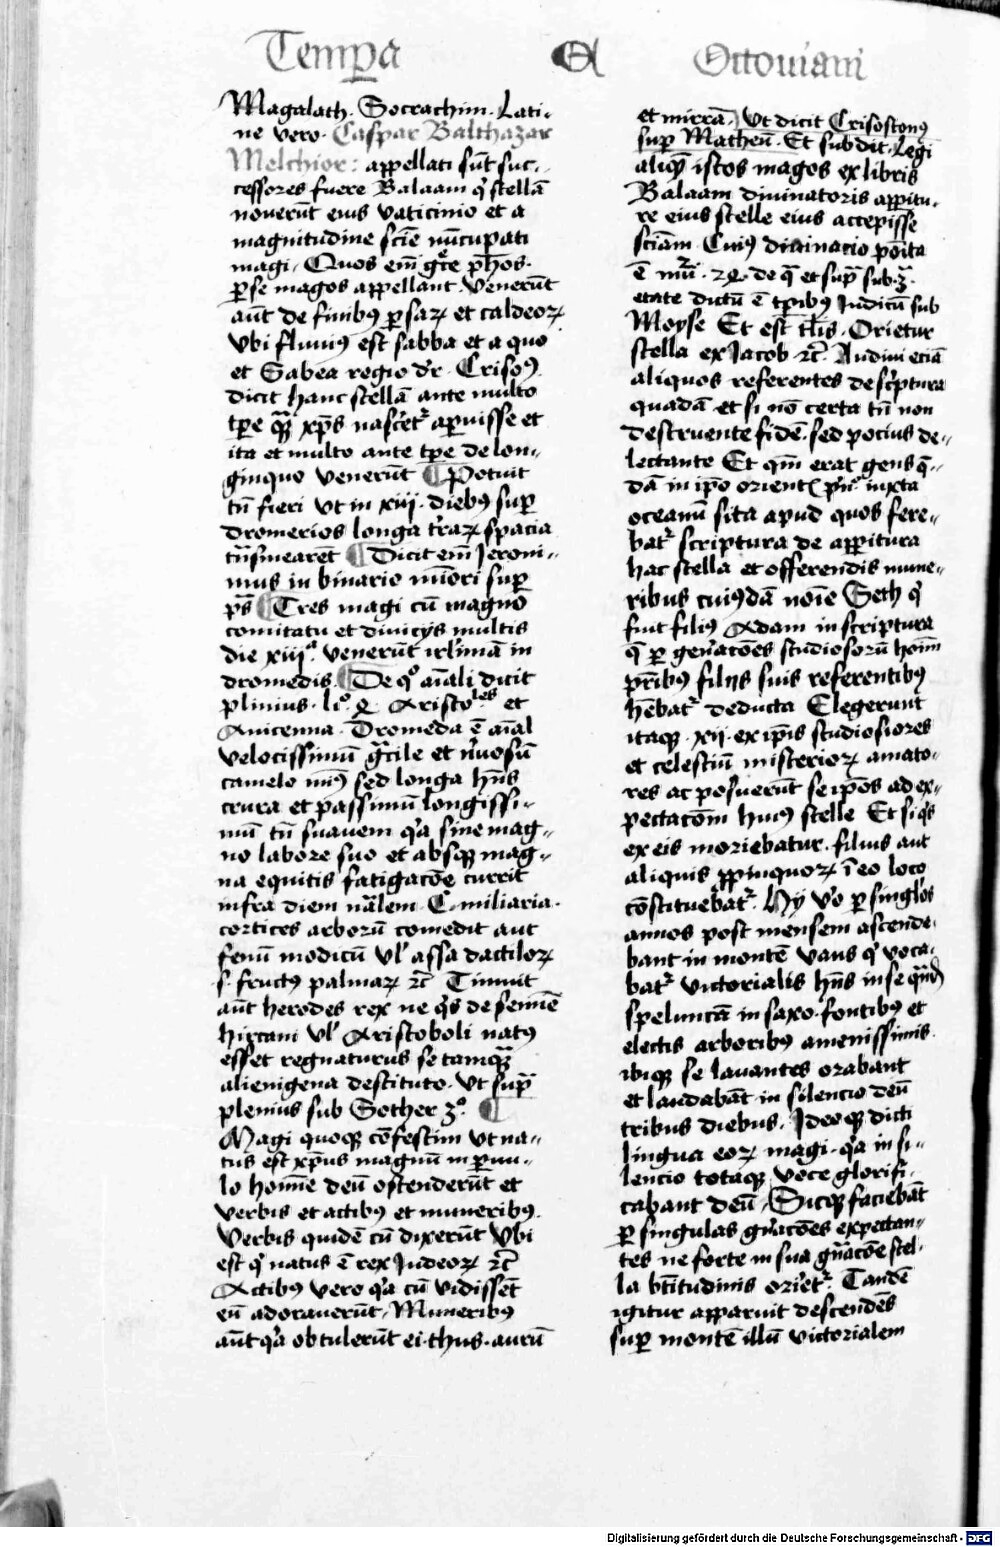 Tempa Et Octouiani
Magalath. Socrachim. Lati-
ne vero. Caspar Balthazar
Melchior: appellati sūt suc-
cessores fuere Balaam qͥ stellā
nouerūt eius vaticinio et a
magnitudine sciē nūcupati
magi. Quos em̄ gͬce ph̄os.
ꝑse magos appellant Venerūt
aūt de finibꝰ ꝑsaꝝ et caldeoꝝ
vbi fluuiꝰ est sabba et a quo
et Sabea regio dr̄. Crisoꝰ
dicit hanc stellā ante multo
tꝑe qͣꝫ xp̄s nascetᷣ aꝑuisse et
ita et multo ante tꝑe de lon-
ginquo venerūt ¶ Potuit
tn̄ fieri vt in xiii. diebꝰ suꝑ
dromerios longa tr̄aꝝ spacia
tn̄smearēt ¶ Dicit em̄ Jeroni-
mus in binario nūori suꝑ
ps̄ ¶ Tres magi cū magno
comitatu et diuicijs multis
die xiiiᵃ. venerūt irl̄imā in
dromedis. ¶ De qͦ aīali dicit
plinius. liͦ. 8. Aristoˡᵉˢ et
Auicenna. Dromeda ē aīal
velocissimū gͣcile et nͬuosū
camelo miꝰ sed longa hn̄s
crura et passimū longissi-
mū tn̄ suauem qͥa sine mag-
no labore suo et absqꝫ mag-
na equitis fatigacōe currit
infra diem nālem. C. miliaria.
cortices arborū comedit aut
fenū modicū vl̓ assa dactiloꝝ
s. fructꝰ palmaꝝ ⁊c̄ Timuit
aūt herodes rex ne qͥs de semīe
hircani vl̓ Aristoboli natꝰ
esset regnaturus se tamqͣꝫ
alienigena destituto. vt supͣ
plenius sub Sother 3ͦ. ¶
Magi quoqꝫ cōfestim vt na-
tus est xp̄us magnū in ꝑuu-
lo homīe deū ostenderūt et
verbis et actibꝰ et muneribꝰ.
Verbis quidē cū dixerūt vbi
est qͥ natus ē rex Judeoꝝ ⁊c̄
Actibus vero qͥa cū vidissēt
eū adorauerūt. Muneribꝰ
aūt qͥa obtulerūt ei. thus. aurū
et mirrā. Vt dicit Crisostomꝰ
suꝑ Matheū. Et subdit. Legi
aliqͥꝫ istos magos ex libris
Balaam diuinatoris apparitu-
re eius stelle eius accepisse
sciam. Cuiꝰ diuinacio poīta
ē de qͣ et supͣ sub. 3ͣ.
etate dictū ē tꝑibꝰ Judicū sub
Moyse Et est tl̄is. Orietur
stella ex Jacob ⁊c̄. Audiui etiā
aliquos referentes de scͥptura
quadā et si nō certa tn̄ non
destruente fidē. sed pocius de-
lectante Et qm̄ erat gens q̄-
dā in ip̄o orient iuxta
oceanū sita apud quos fere-
batᷣ scriptura de apparitura
hac stella et offerendis mune-
ribus cuiꝰdā noīe Seth qͥ
fuit filiꝰ Adam in scriptura
q̄ ꝑ gen̄acōes studiosorū hoīm
pr̄ibꝰ filijs suis referentibꝰ
hēbatᷣ deducta Elegerunt
itaqꝫ. xii. ex ip̄is studiosiores
et celestiū misterioꝝ amato-
res ac posuerūt se ip̄os ad ex-
pectacōm huiꝰ stelle Et si qͥs
ex eis moriebatur. filius aut
aliquis ꝓpinquoꝝ ī eo loco
cōstituebatᷣ. Hy vͦo ꝑ singlos
annos post mensem ascende-
bant in montē vaus qͥ voca-
batᷣ victorialis hn̄s in se
speluncā in saxo. fontibꝰ et
electis arboribꝰ amenissimis.
ibiqꝫ se lauantes orabant
et laudabāt in silencio deū
tribus diebus. Ideoqꝫ dicti
lingua eoꝝ magi. qͥa in si-
lencio totaqꝫ voce glorifi-
cabant deū. Sicqꝫ faciebāt
ꝑ singulas gn̄acōes expectan-
tes ne forte in sua gn̄acōe stel-
la bt̄itudinis orietᷣ. Tandē
igitur apparuit descendēs
suꝑ montē illū victorialem
Digitalisierung gefördert durch die Deutsche Forschungsgemeinschaft - DFG